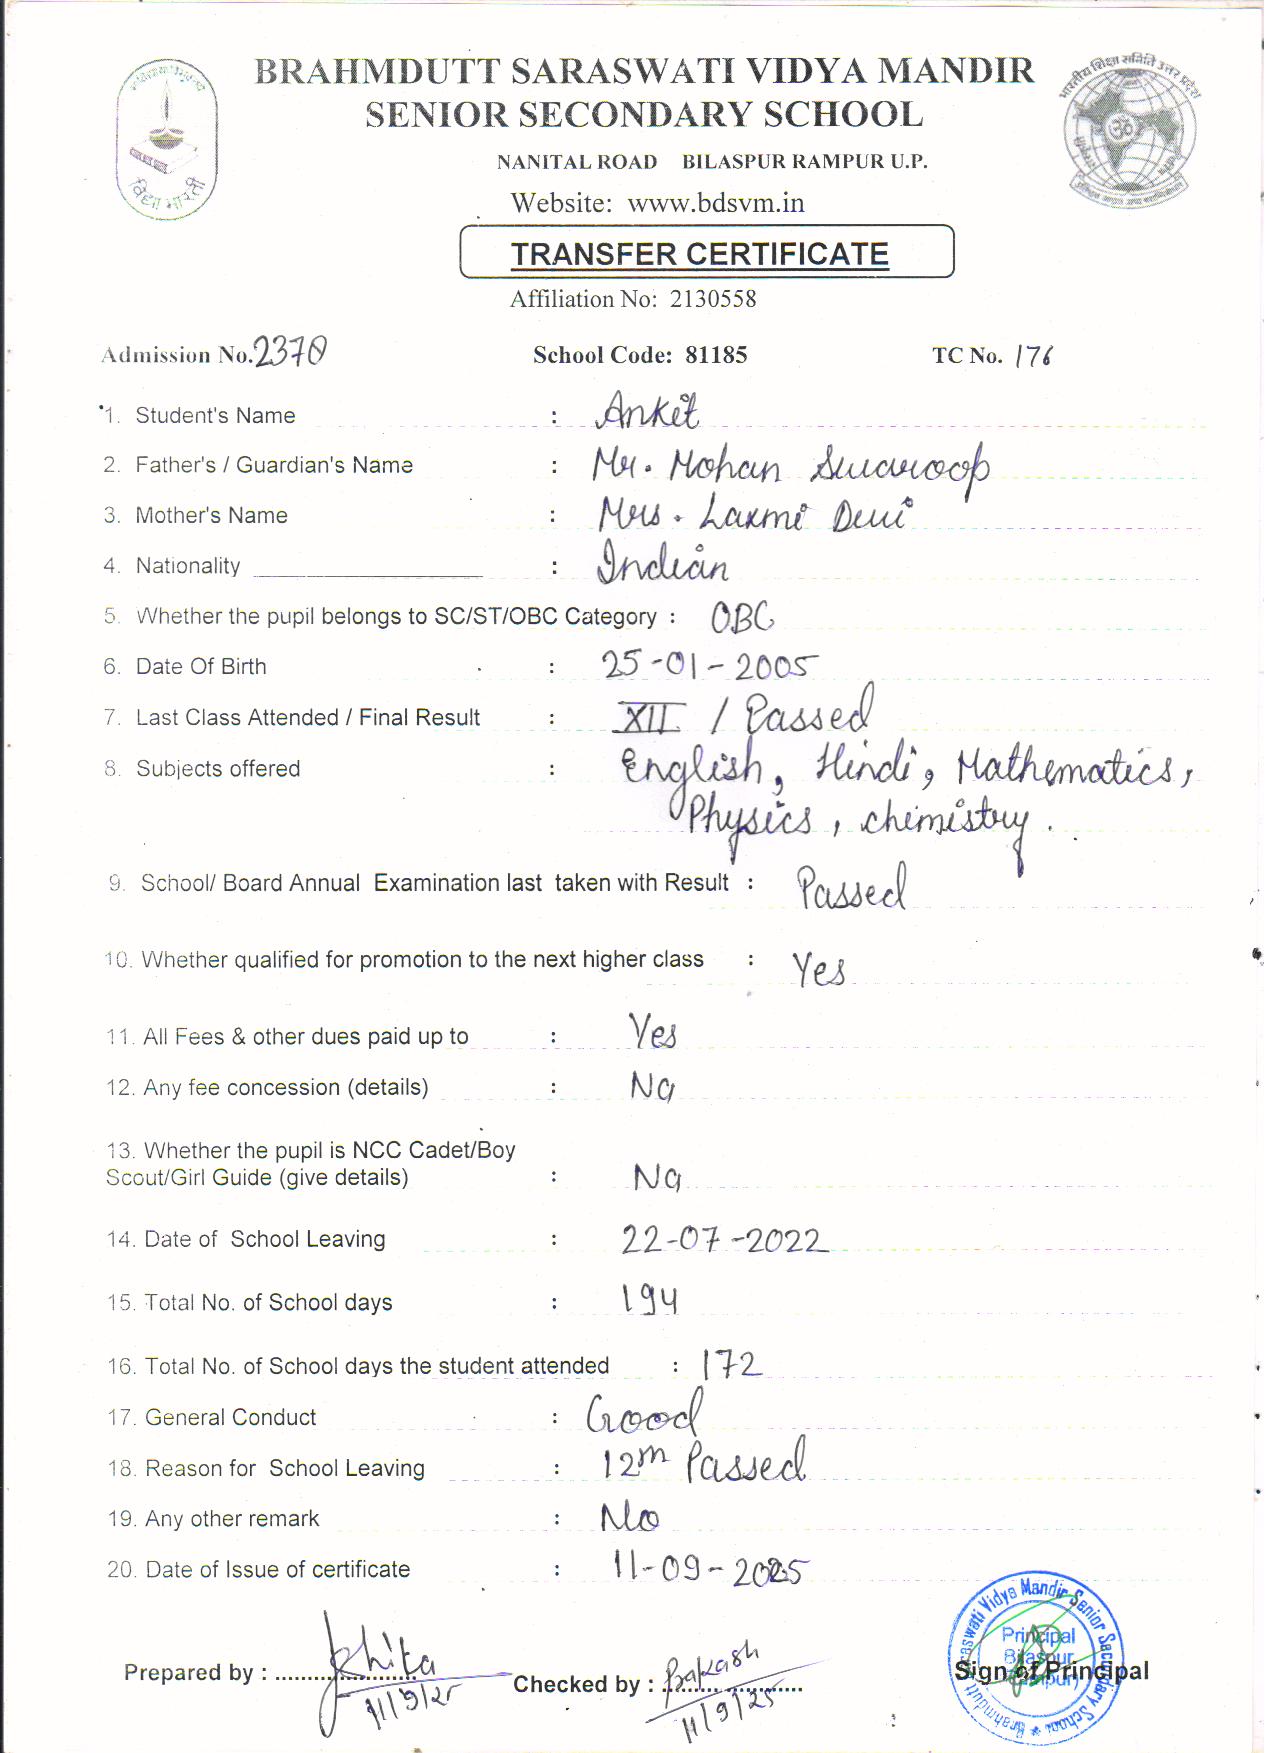 BRAHMDUTT SARASWATI VIDYA MANDIR
SENIOR SECONDARY SCHOOL
NANITAL ROAD BILASPUR RAMPUR U.P.
Website: www.bdsvm.in
विद्या भारती
भारतीय शिक्षा समिति उत्तर प्रदेश
TRANSFER CERTIFICATE
Affiliation No: 2130558
Admission No. 2370 School Code: 81185 TC No. 176
1. Student's Name : Ankit
2. Father's / Guardian's Name : Mr. Mohan Swaroop
3. Mother's Name : Mrs. Laxmi Devi
4. Nationality : Indian
5. Whether the pupil belongs to SC/ST/OBC Category : OBC
6. Date Of Birth : 25-01-2005
7. Last Class Attended / Final Result : XII / Passed
8. Subjects offered : English, Hindi, Mathematics,
Physics, chemistry.
9. School/ Board Annual Examination last taken with Result : Passed
10. Whether qualified for promotion to the next higher class : Yes
11. All Fees & other dues paid up to : Yes
12. Any fee concession (details) : No
13. Whether the pupil is NCC Cadet/Boy
Scout/Girl Guide (give details) : No
14. Date of School Leaving : 22-07-2022
15. Total No. of School days : 194
16. Total No. of School days the student attended : 172
17. General Conduct : Good
18. Reason for School Leaving : 12th Passed
19. Any other remark : No
20. Date of Issue of certificate : 11-09-2025
Prepared by : 11/9/25 Checked by : 11/9/25 Sign of Principal
Saraswati Vidya Mandir Senior Secondary School Brahmdutt
Principal
Bilaspur